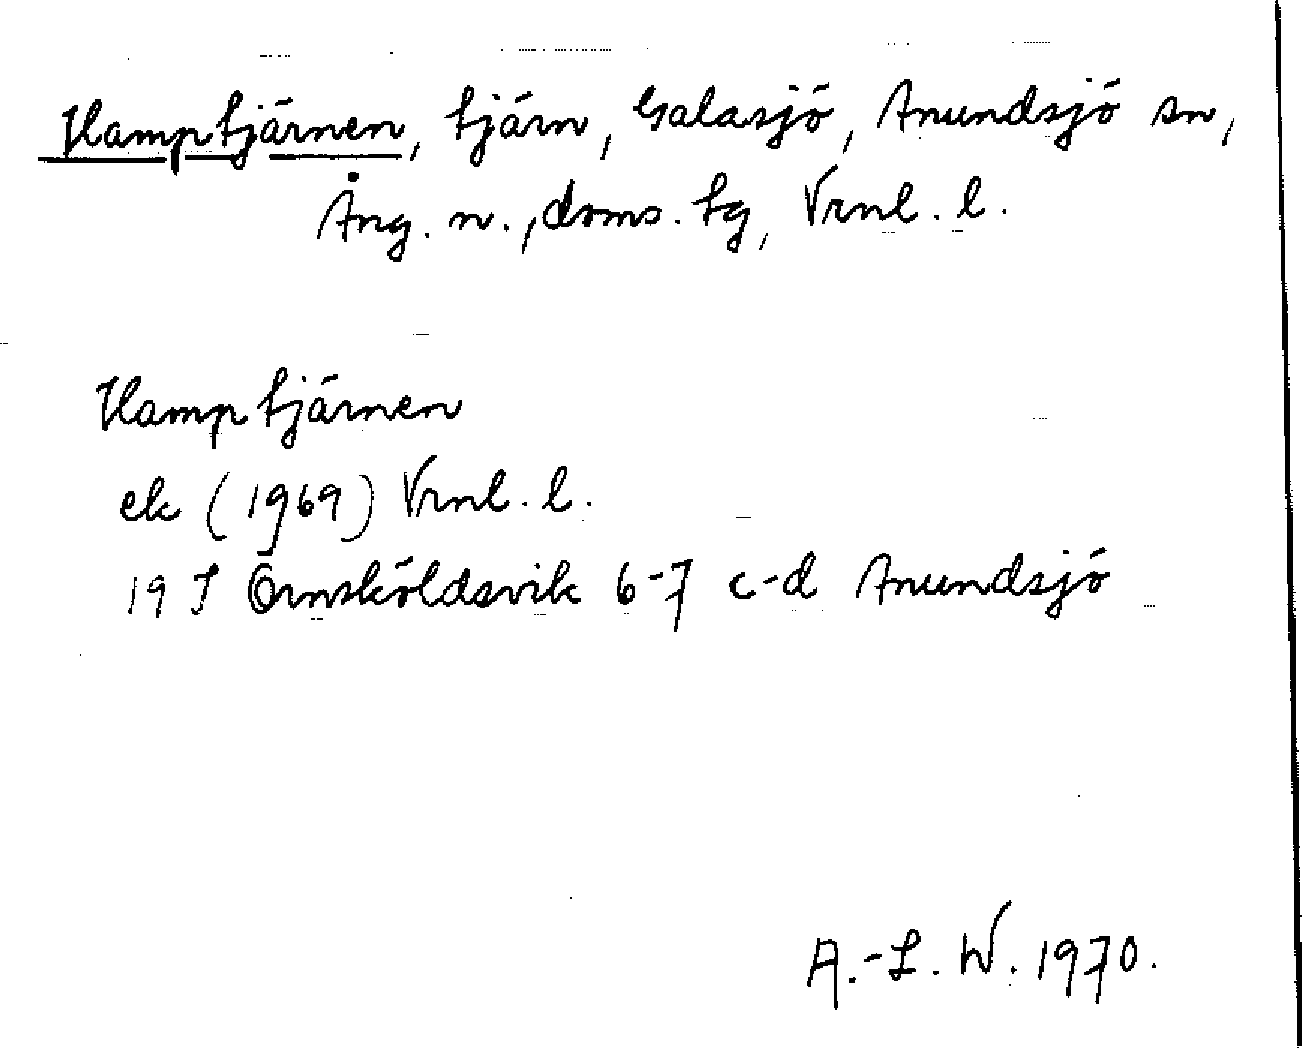 Hamptjärnen, tjärn, Galasjö, Anundsjö sn,
Ång. n., doms. tg, Vrnl. l.
Hamptjärnen
ek (1969) Vrnl. l.
19 J Örnsköldsvik 6-7 c-d Anundsjö
A.-L. W. 1970.